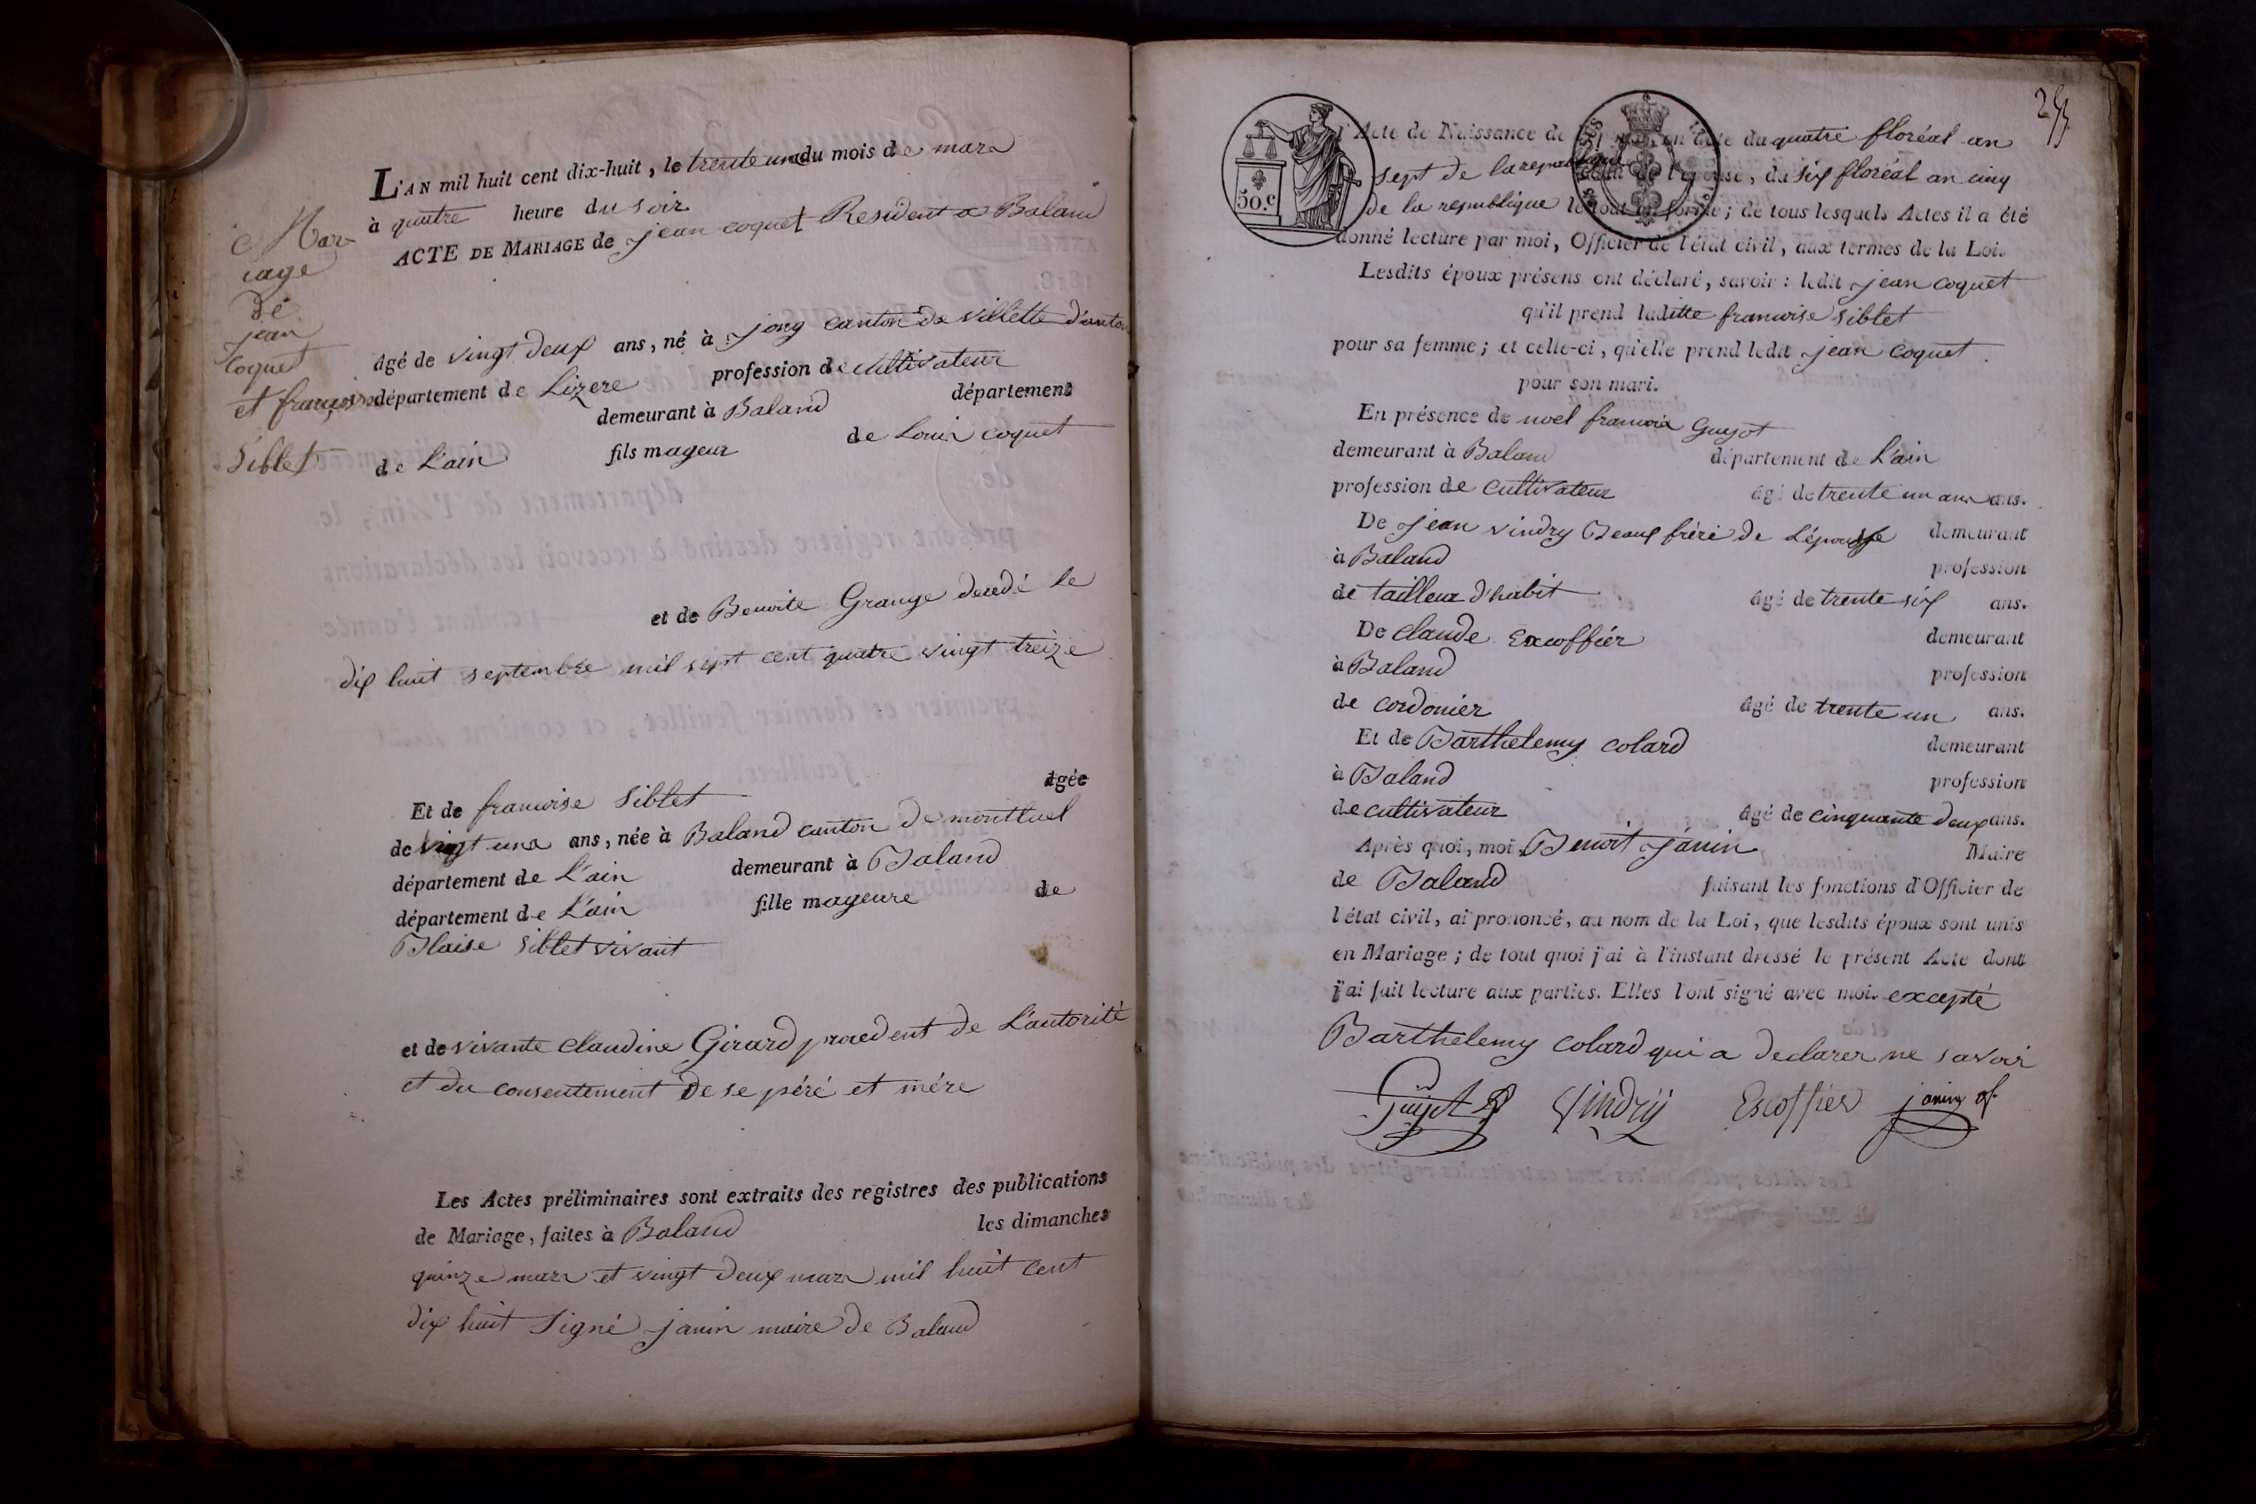 Mar-
iage
de
jean
Coquet
et françoise
Siblet
L'AN mil huit cent dix-huit, le trente un du mois de mars
à quatre heure du soir
ACTE DE MARIAGE de jean coquet Resident a Baland
âgé de vingt deux ans, né à jony canton de villette d'anton
département de Lizere profession de cultivateur
demeurant à Baland département
de L'ain fils mageur de Louis coquet
et de Benoite Grange decedé le
dix huit septembre mil sept cent quatre vingt treize
Et de francoise Siblet âgée
de vingt uns ans, née à Baland canton de montluel
département de L'ain demeurant à Baland
département de L'ain fille mageure de
Blaise Siblet vivant
et de vivante claudine Girard procedent de L'autorité
et du consentement de se péré et mére
Les Actes préliminaires sont extraits des registres des publications
de Mariage, faites à Baland les dimanches
quinze mars et vingt deux mars mil huit cent
dix huit Signé janin maire de Baland
50.c
l'Acte de Naissance de en date du quatre floréal an
sept de la republique celui de l'épouse, du six floréal an cinq
de la republique le tout en forme; de tous lesquels Actes il a été
donné lecture par moi, Officier de l'état civil, aux termes de la Loi.
Lesdits époux présens ont déclaré, savoir: ledit jean coquet
qu'il prend laditte francoise Siblet
pour sa femme; et celle-ci, qu'elle prend ledit jean coquet
pour son mari.
En présence de noel francois Guyot
demeurant à Baland département de L'ain
profession de cultivateur âgé de trente un ans ans.
De jean vindry Beaux frére de L'épouse demeurant
à Baland profession
de tailleur d'habit âgé de trente six ans.
De claude Excoffier demeurant
à Baland profession
de cordonier âgé de trente un ans.
Et de Barthelemy colard demeurant
à Baland profession
de cultivateur âgé de cinquante deux ans.
Après quoi, moi, Benoit janin Maire
de Baland faisant les fonctions d'Officier de
l'état civil, ai prononcé, au nom de la Loi, que lesdits époux sont unis
en Mariage; de tout quoi j'ai à l'instant dressé le présent Acte dont
j'ai fait lecture aux parties. Elles l'ont signé avec moi. excepté
Barthelemy colard qui a declarer ne savoir
Guyot Vindry Escoffier janin